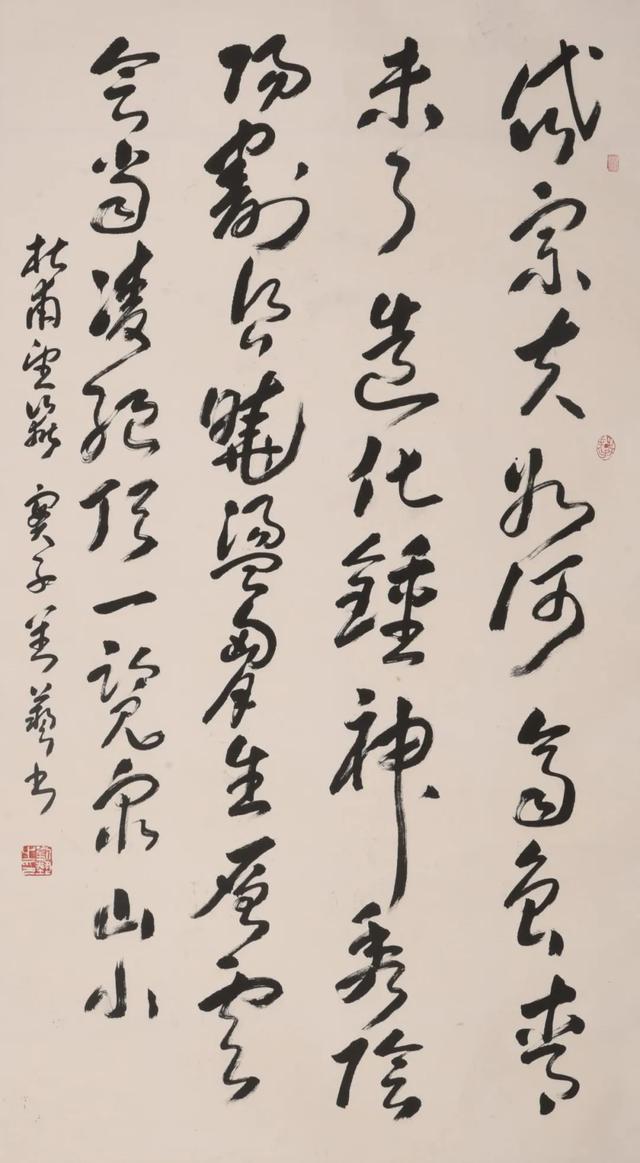 岱宗夫如何齊魯青
未了造化鍾神秀陰
陽割昏曉盪胷生層雲
會當凌絕頂一覽衆山小
杜甫望嶽 庚子 書